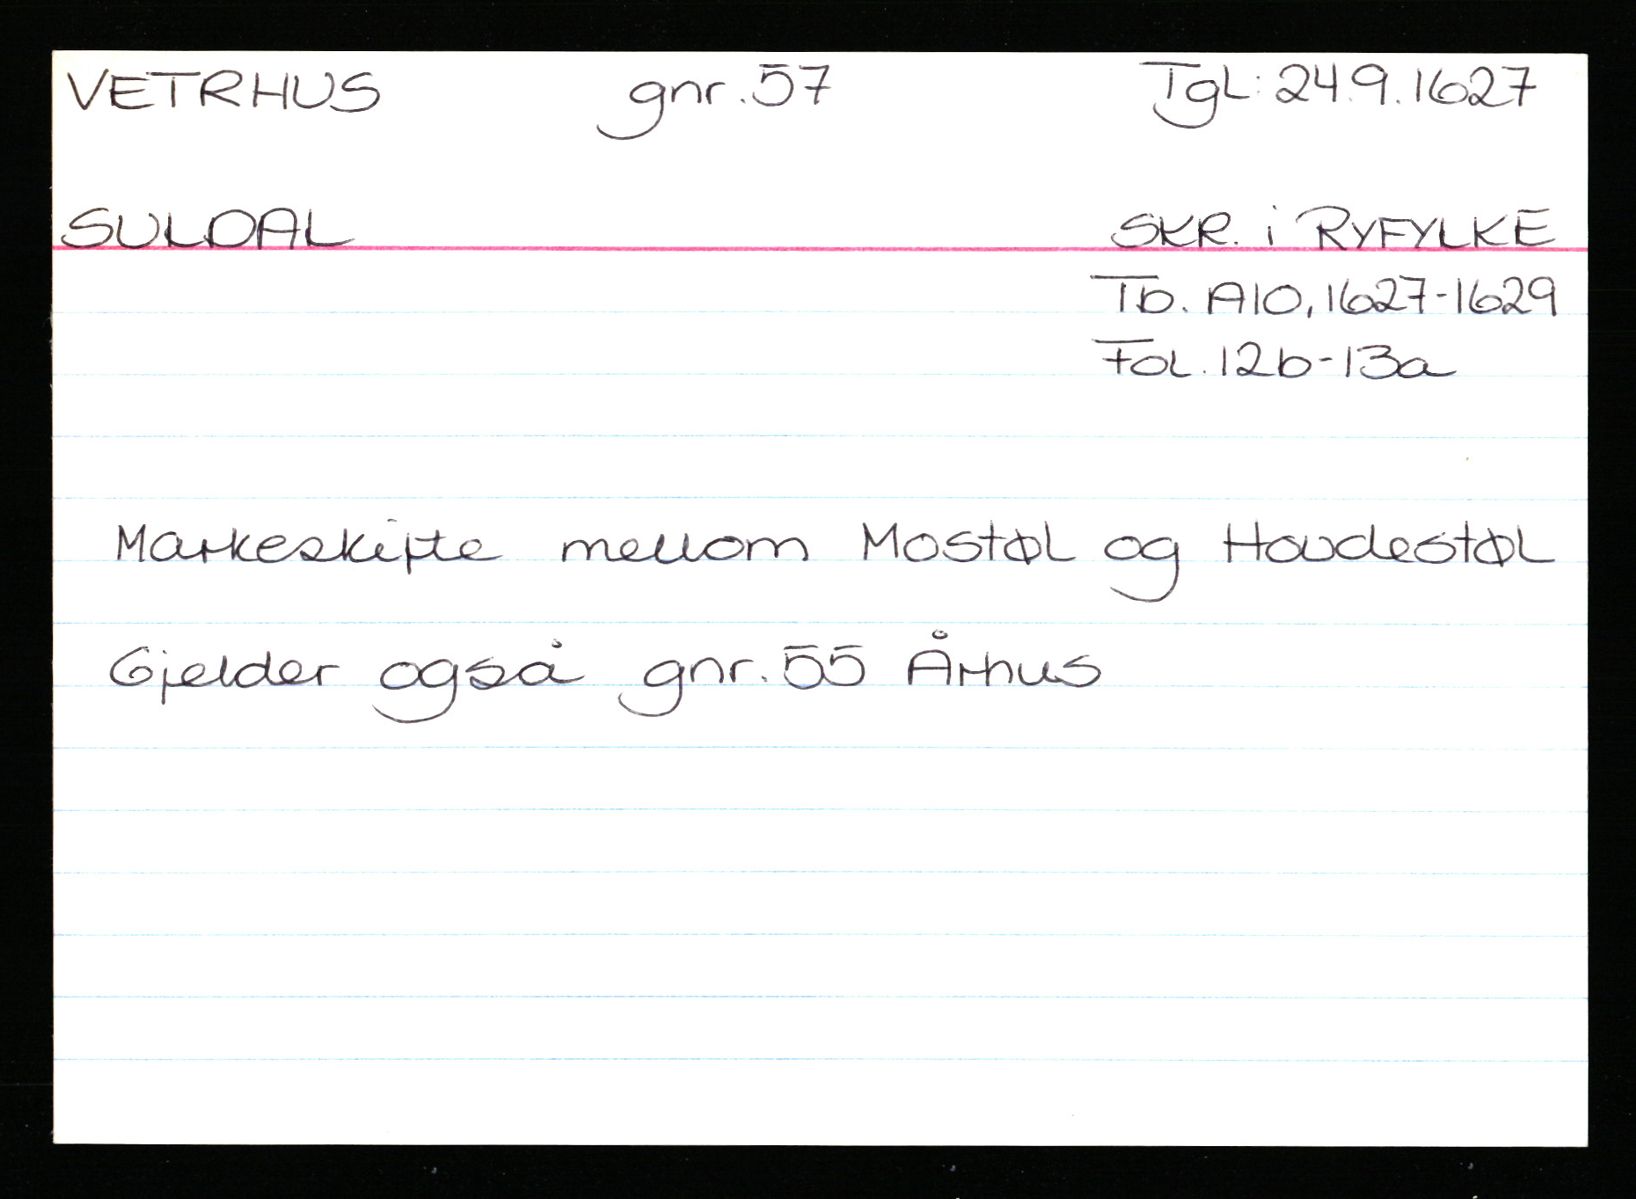 VETRHUS gnr. 57 Tgl: 24.9.1627
SULDAL SKR. i RYFYLKE
Tb. A10, 1627-1629
Fol. 12b-13a
Markeskifte mellom Mostøl og Hovdestøl
Gjelder også gnr. 55 Århus